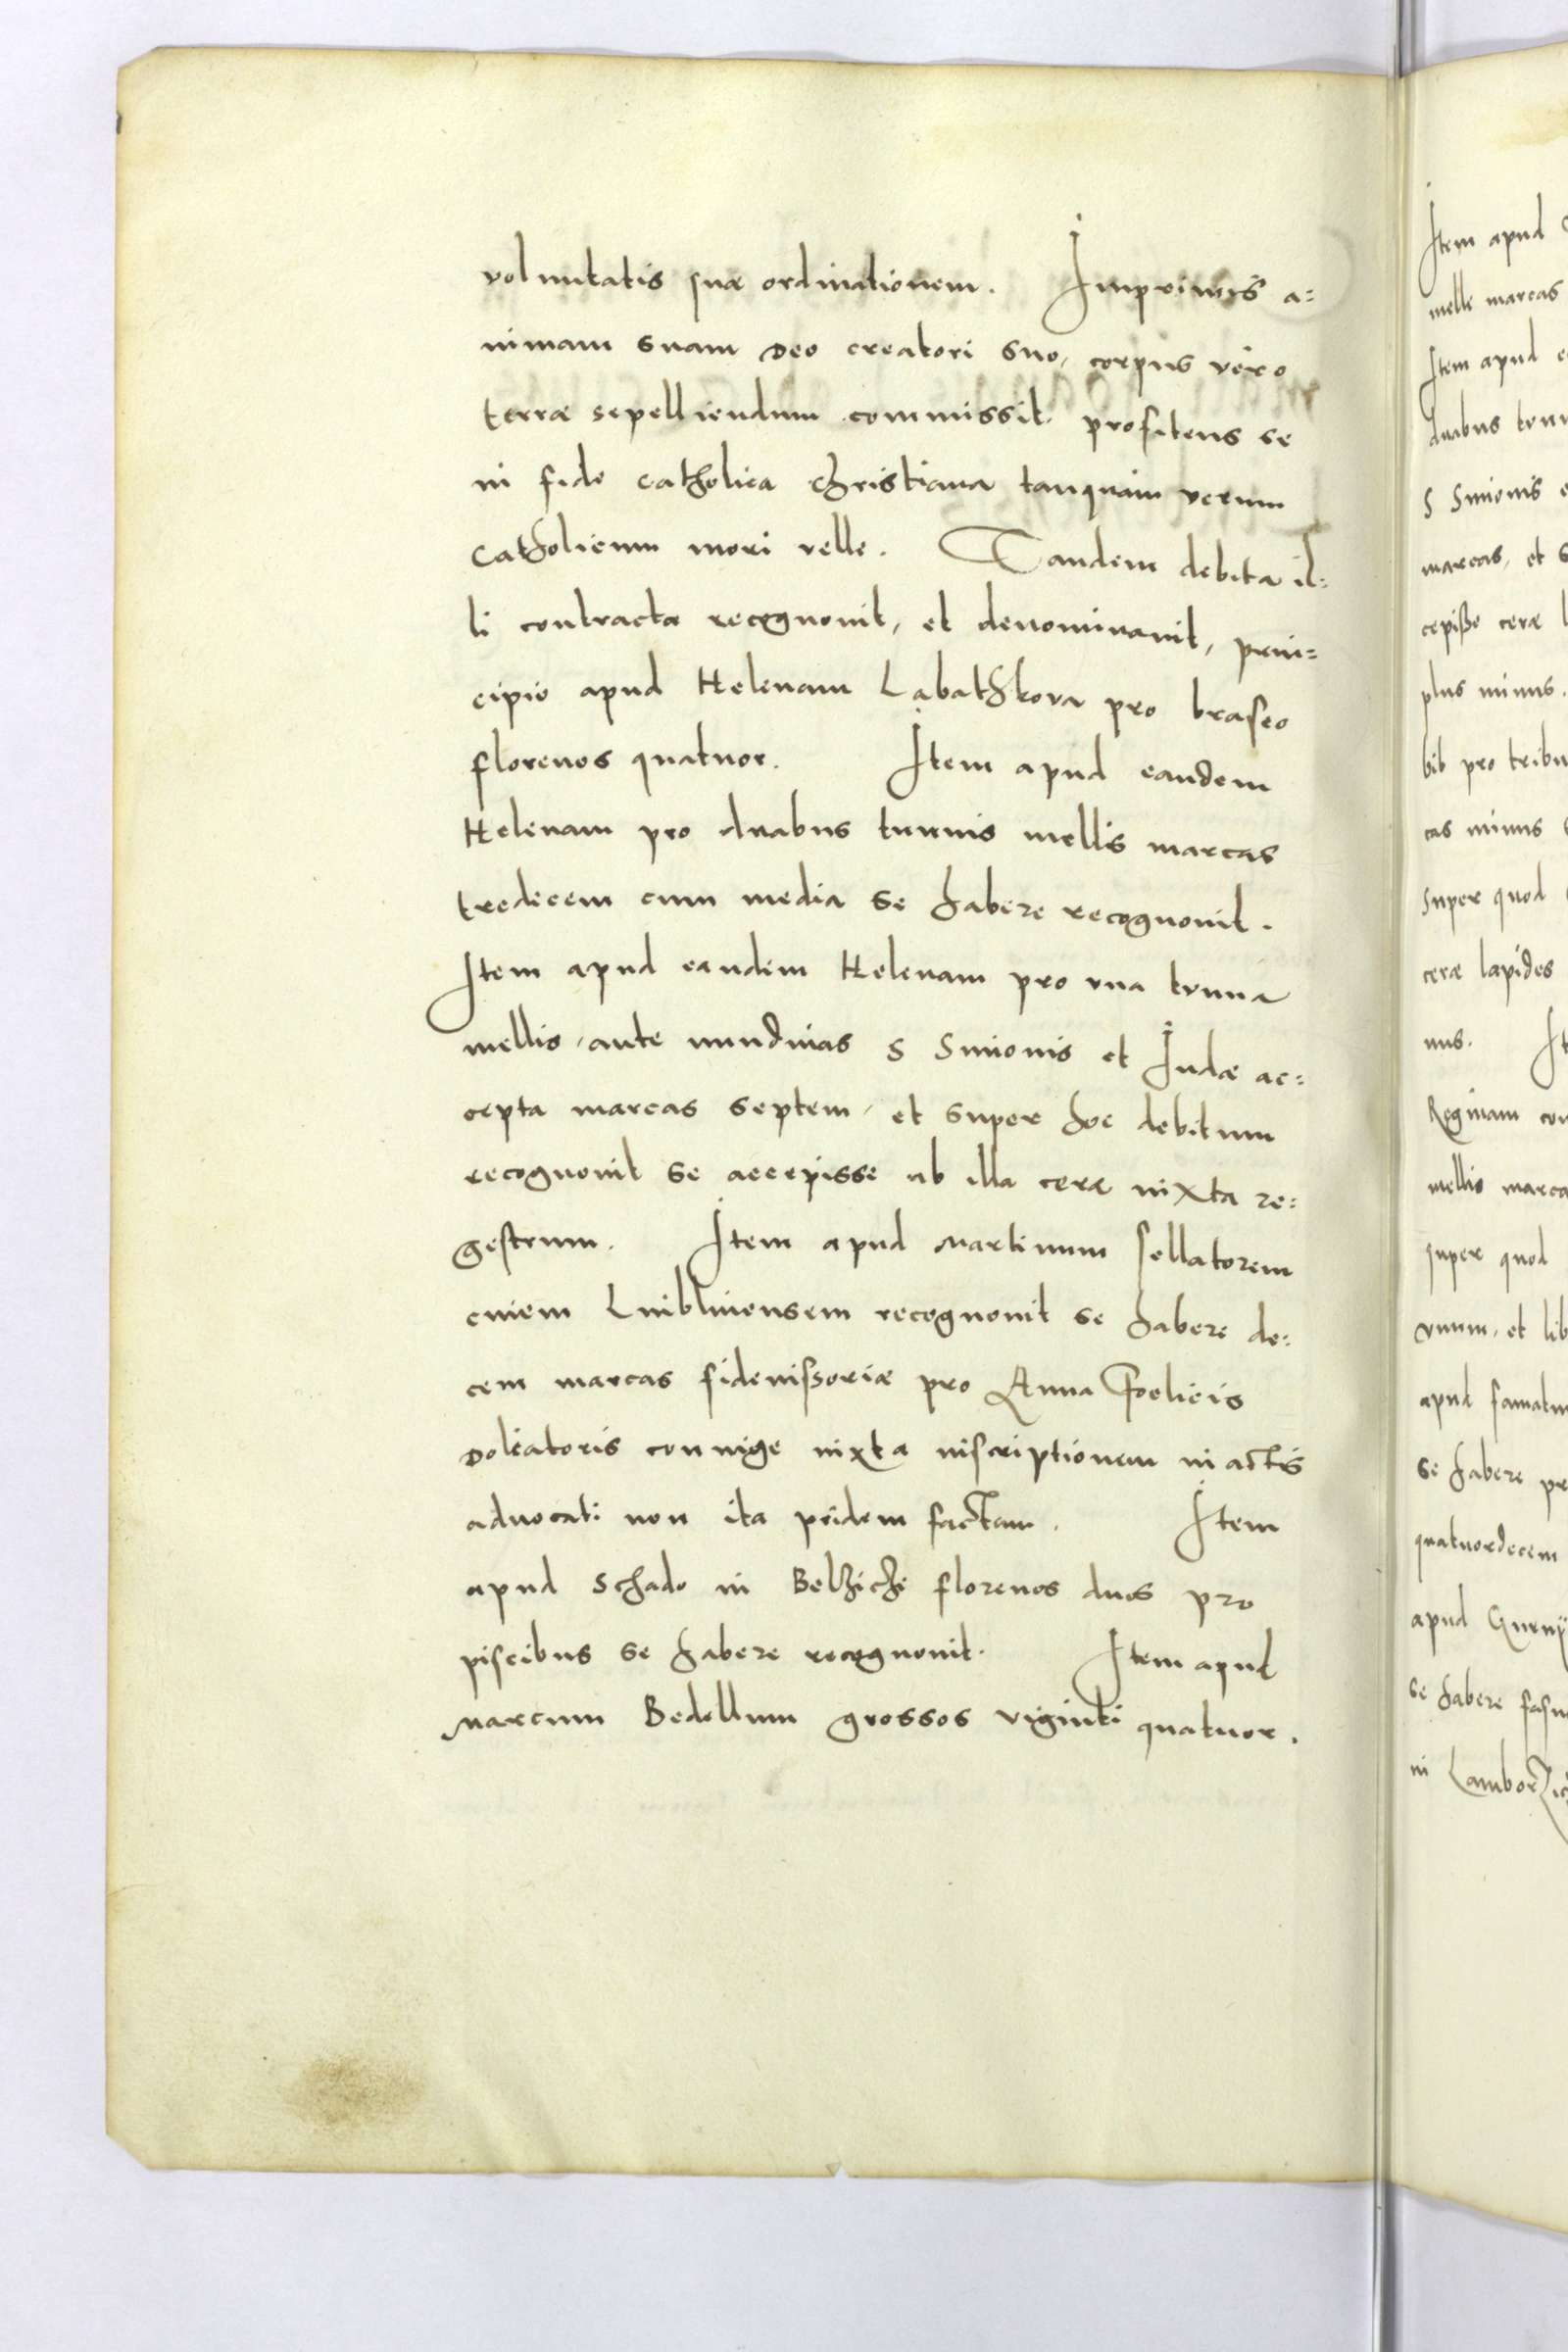 voluntatis suæ ordinationem. Imprimis a=
nimam suam Deo creatori suo, corpus vero
terræ sepelliendum commissit profitens se
in fide catholica christiana tanquam verum
Catholicum mori velle. Tandem debita il=
li contracta recognovit, et denominavit, prin=
cipio apud Helenam Labathkova pro braseo
florenos quatuor. Item apud eandem
Helenam pro duabus tunnis mellis marcas
tredecem cum media se habere recognovit.
Item apud eandem Helenam pro una tunna
mellis, ante nundinas S Simonis et Iudæ ac=
cepta marcas septem, et super hoc debitum
recognovit se accepisse ab illa ceræ iuxta re=
gestrum. Item apud Martinum sellatorem
civem Lublinensem recognovit se habere de=
cem marcas fideiussoriæ pro Anna Foelicis
Doliatoris coniuge iuxta inscriptionem in actis
advocati non ita pridem factam. Item
apud Schado in Belzichi florenos duos pro
piscibus se habere recognovit. Item apud
Marcum Bedellum grossos viginti quatuor.
Item apud
melle marcas
Item apud
duabus tunn
S Simonis
marcas, et
cepisse ceræ
plus minus.
bit pro tribu
cas minus
super quod
ceræ lapides
nus. It
Reginam con
mellis marca
super quod
unum, et lib
apud famatu
se habere pr
quatuordecem
apud
se habere
in Lamborzic